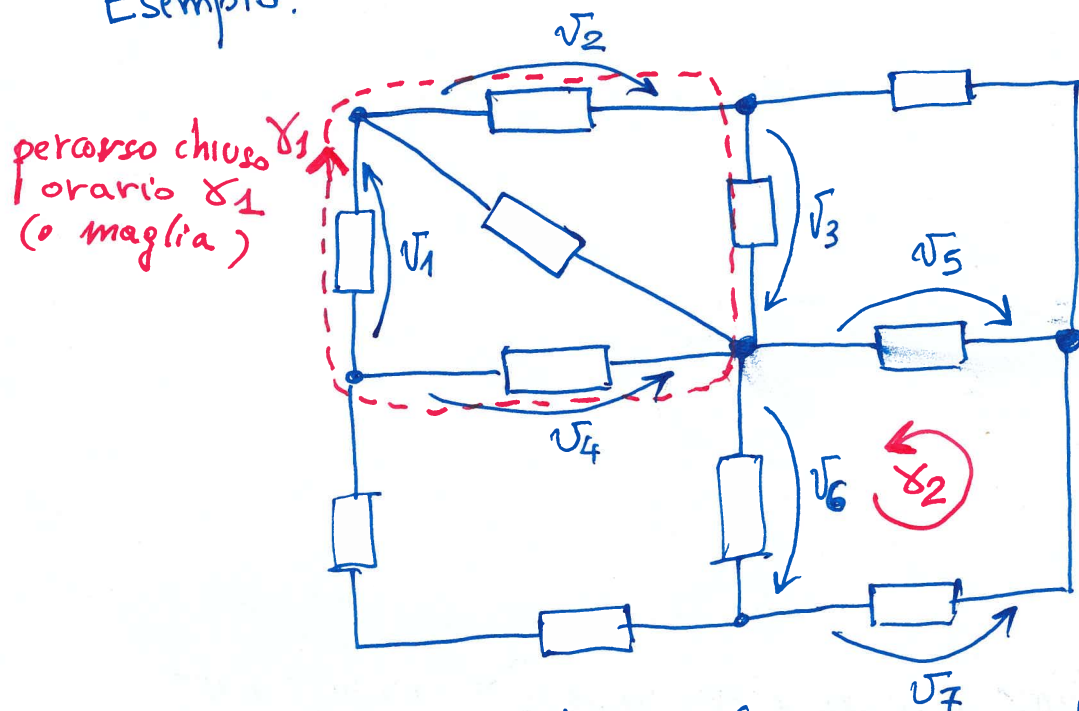 Esempio:
v2
percorso chiuso γ1
orario γ1
(o maglia)
v1
v3
v5
v4
v6
γ2
v7